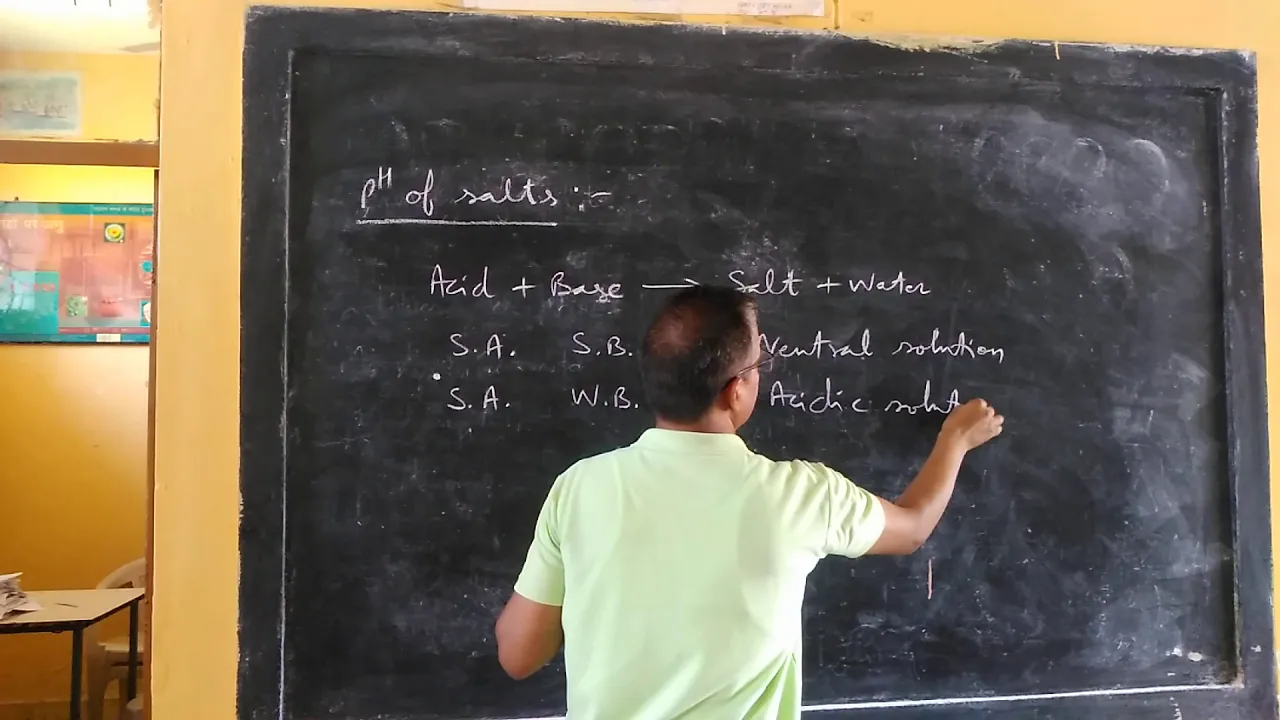 pH of salts :-
Acid + Base → Salt + Water
S.A. S.B. Neutral solution
S.A. W.B. Acidic solut